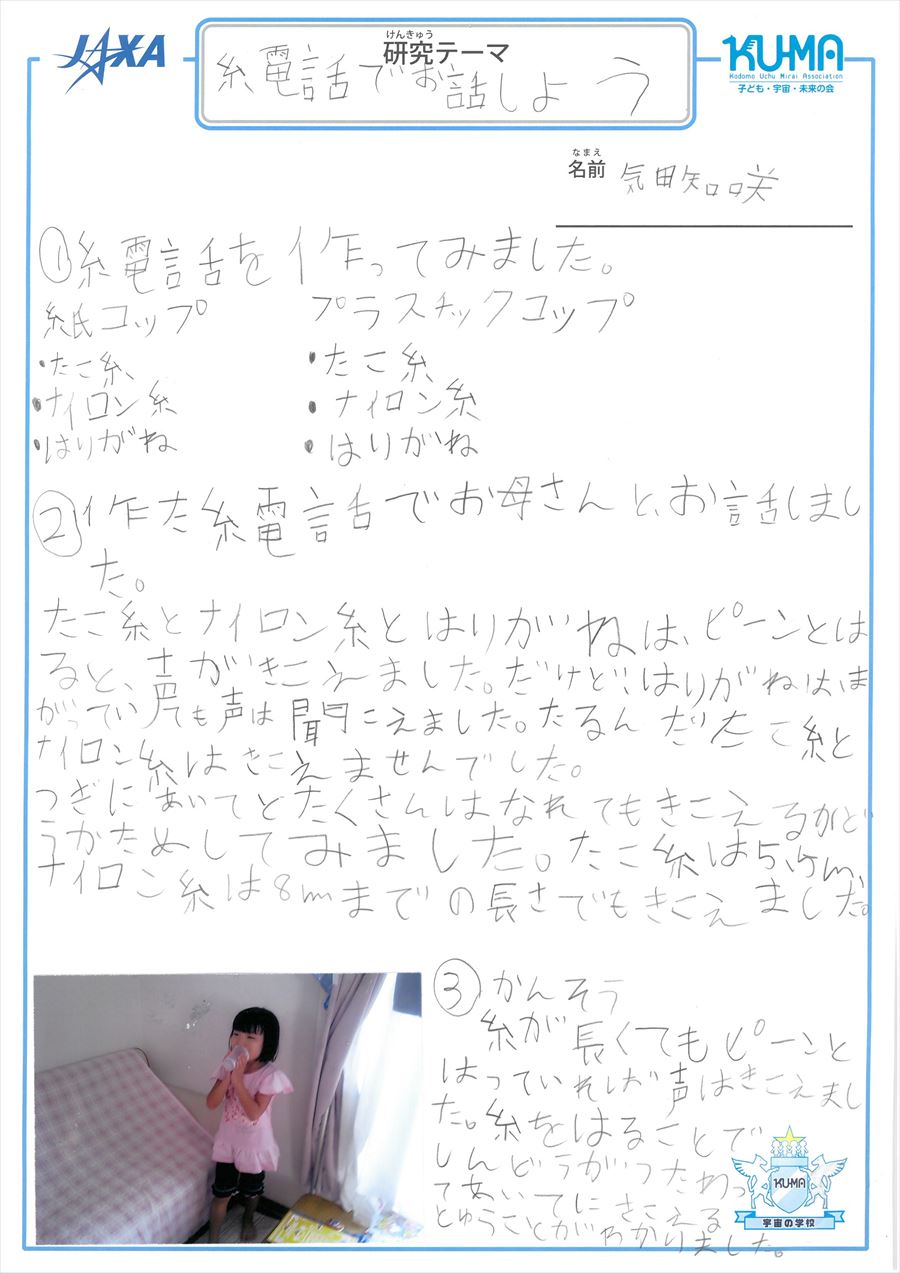 JAXA
けんきゅう
研究テーマ
糸電話でお話ししよう
KU-MA
Kodomo Uchu Mirai Association
子ども・宇宙・未来の会
なまえ
名前 気田知咲
①糸電話を作ってみました。
紙コップ プラスチックコップ
・たこ糸 ・たこ糸
・ナイロン糸 ・ナイロン糸
・はりがね ・はりがね
②作た糸電話でお母さんと、お話しまし
た。
たこ糸とナイロン糸とはりがねは、ピーンとは
ると、声がきこえました。だけど、はりがねは、ま
がってい ても声は聞こえました。たるんだたこ糸と
ナイロン糸はきこえませんでした。
つぎにあいてとたくさんはなれてもきこえるかど
うかためしてみました。たこ糸は5.5m、
ナイロン糸は8mまでの長さでもきこえました。
③かんそう
糸が長くてもピーンと
はっていれば声はきこえまし
た。糸をはることで
しんどうがつたわっ
てあいてにきこえる
とゆうことがわかりました。
KU-MA
宇宙の学校